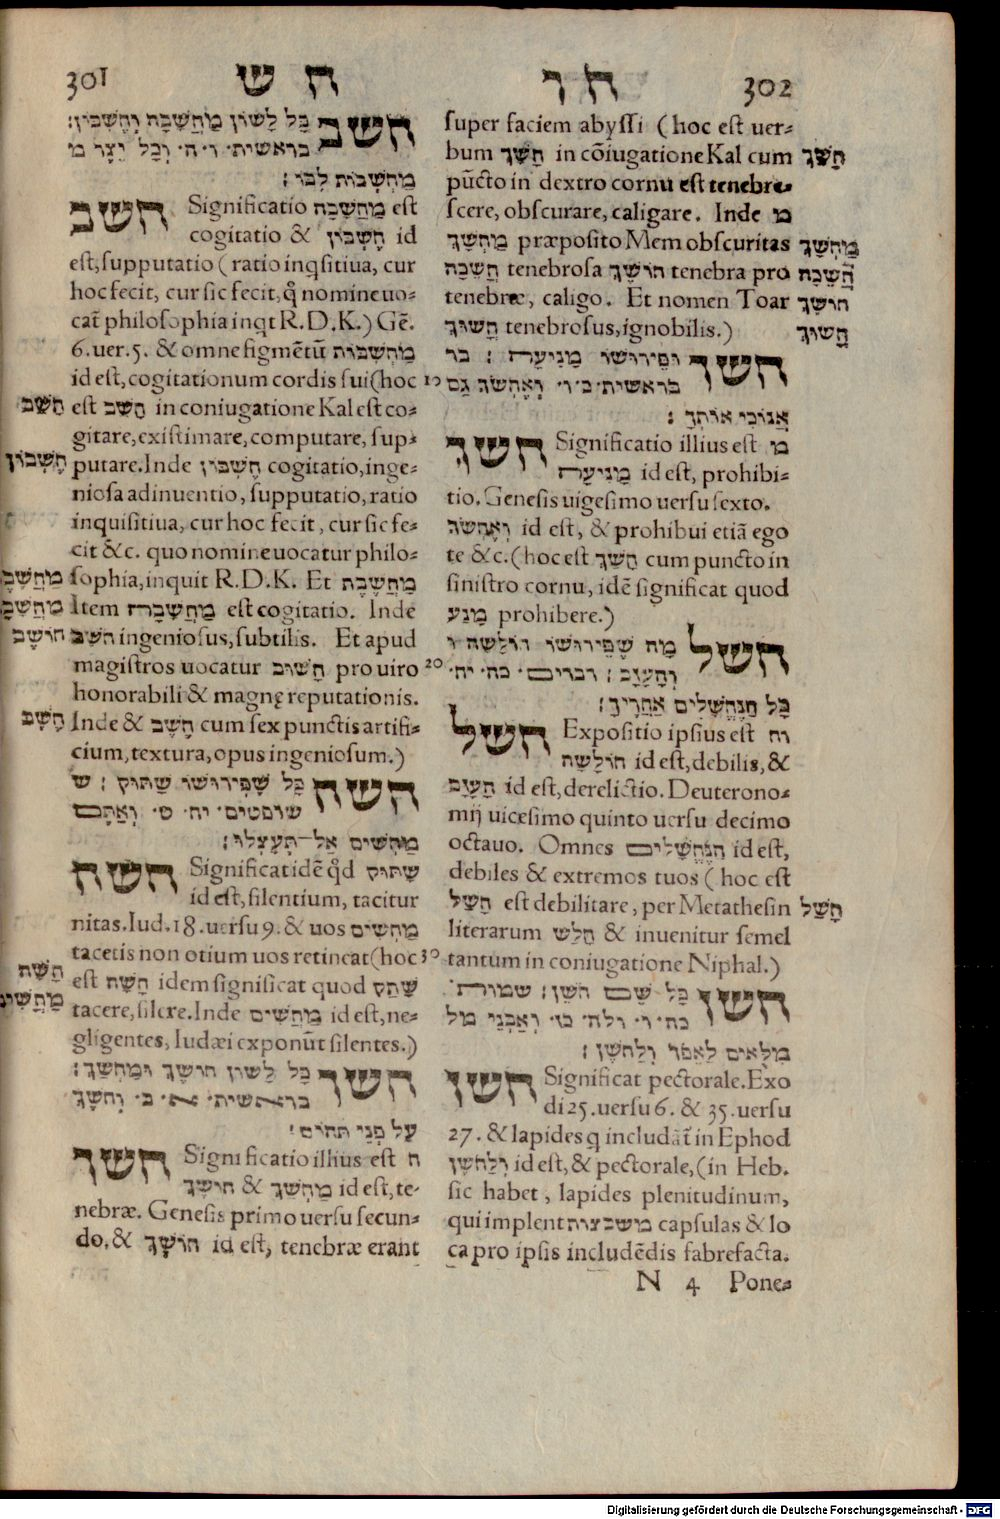 301 ח ש
חשב כָּל לְשׁוֹן מַחֲשָׁבָה וְחֶשְׁבּוֹן:
בראשית· ו· ה· וְכָל יֵצֶר מ
מַחְשְׁבוֹת לִבּוֹ:
חשב Significatio מַחֲשָׁבָה est
cogitatio & חֶשְׁבּוֹן id
est, supputatio (ratio inqsitiua, cur
hoc fecit, cur sic fecit, q̃ nomine uo⸗
cat̃ philosophia inqt R.D.K.) Gẽ.
6. uer. 5. & omne figmẽtũ מַחְשְׁבוֹת
id est, cogitationum cordis sui (hoc 10
חָשַׁב est חָשַׁב in coniugatione Kal est co⸗
gitare, existimare, computare, sup⸗
חֶשְׁבּוֹן putare. Inde חֶשְׁבּוֹן cogitatio, inge⸗
niosa adinuentio, supputatio, ratio
inquisitiua, cur hoc fecit, cur sic fe⸗
cit &c. quo nomine uocatur philo⸗
מַחֲשֶׁבֶ sophia, inquit R.D.K. Et מַחֲשֶׁבֶת
מַחֲשָׁבָ Item מַחֲשָׁבָה est cogitatio. Inde
חוֹשֵׁב חֹשֵׁב ingeniosus, subtilis. Et apud
magistros uocatur חָשׁוּב pro uiro 20
honorabili & magnę reputationis.
חֵשֶׁב Inde & חֵשֶׁב cum sex punctis artifi⸗
cium, textura, opus ingeniosum.)
חשה כָּל שֶׁפֵּירוּשׁוֹ שָׁתוּק: ש
שופטים· יח· ט· וְאַתֶּם
מַחְשִׁים אַל־תֵּעָצְלוּ:
חשה Significat idẽ q̃d שָׁתוּק
id est, silentium, tacitur
nitas. Iud. 18. uersu 9. & uos מַחְשִׁים
tacetis non otium uos retineat (hoc 30
חָשָׁה est חָשָׁה idem significat quod שָׁתַק
מַחְשִׁים tacere, silere. Inde מַחְשִׁים id est, ne⸗
gligentes, Iudæi exponũt silentes.)
חשך כָּל לְשׁוֹן חוֹשֶׁךְ וּמַחְשָׁךְ:
בראשית· א· ב· וְחשֶׁךְ
עַל פְּנֵי תְהוֹם:
חשך Significatio illius est ח
חוֹשֶׁךְ & מַחְשָׁךְ id est, te⸗
nebræ. Genesis primo uersu secun⸗
do, & חוֹשֶׁךְ id est, tenebræ erant
ח ו 302
super faciem abyssi (hoc est uer⸗
bum חָשַׁךְ in cõiugatione Kal cum חָשַׁךְ
pũcto in dextro cornu est tenebre⸗
scere, obscurare, caligare. Inde מ
מַחְשָׁךְ præposito Mem obscuritas מַחְשָׁךְ
חֲשֵׁכָה tenebrosa חוֹשֶׁךְ tenebra pro חֲשֵׁכָה
tenebræ, caligo. Et nomen Toar חוֹשֶׁךְ
חָשׁוּךְ tenebrosus, ignobilis.) חָשׁוּךְ
חשך וּפֵירוּשׁוֹ מְנִיעָה: בר
בראשית· כ· ו· וָאֶחְשׂךְ גַּם
אָנוֹכִי אוֹתְךָ:
חשך Significatio illius est מ
מְנִיעָה id est, prohibi⸗
tio. Genesis uigesimo uersu sexto.
וְאֶחְשׂךְ id est, & prohibui etiã ego
te &c. (hoc est חָשַׂךְ cum puncto in
sinistro cornu, idẽ significat quod
מָנַע prohibere.)
חשל מַה שֶּׁפֵּירוּשׁוֹ חוּלְשָׁה ו
וְהָעֲזָב: דברים· כה· יח·
כָּל הַנֶּחֱשָׁלִים אַחֲרֶיךָ:
חשל Expositio ipsius est וח
חוּלְשָׁה id est, debilis, &
הָעֲזָב id est, derelictio. Deuterono⸗
mij uicesimo quinto uersu decimo
octauo. Omnes הַנֶּחֱשָׁלִים id est,
debiles & extremos tuos (hoc est
חָשַׁל est debilitare, per Metathesin חָשַׁל
literarum חָלַשׁ & inuenitur semel
tantum in coniugatione Niphal.)
חשן כָּל שֵׁם חשֶׁן: שמות·
כה· ו· ולה· כז· וְאַבְנֵי מל
מִלּוּאִים לָאֵפוֹד וְלַחשֶׁן:
חשן Significat pectorale. Exo
di 25. uersu 6. & 35. uersu
27. & lapides q includãt̃ in Ephod
וְלַחשֶׁן id est, & pectorale, (in Heb.
sic habet, lapides plenitudinum,
qui implent משבצות capsulas & lo
ca pro ipsis includẽdis fabrefacta.
N 4 Pone⸗
Digitalisierung gefördert durch die Deutsche Forschungsgemeinschaft - DFG